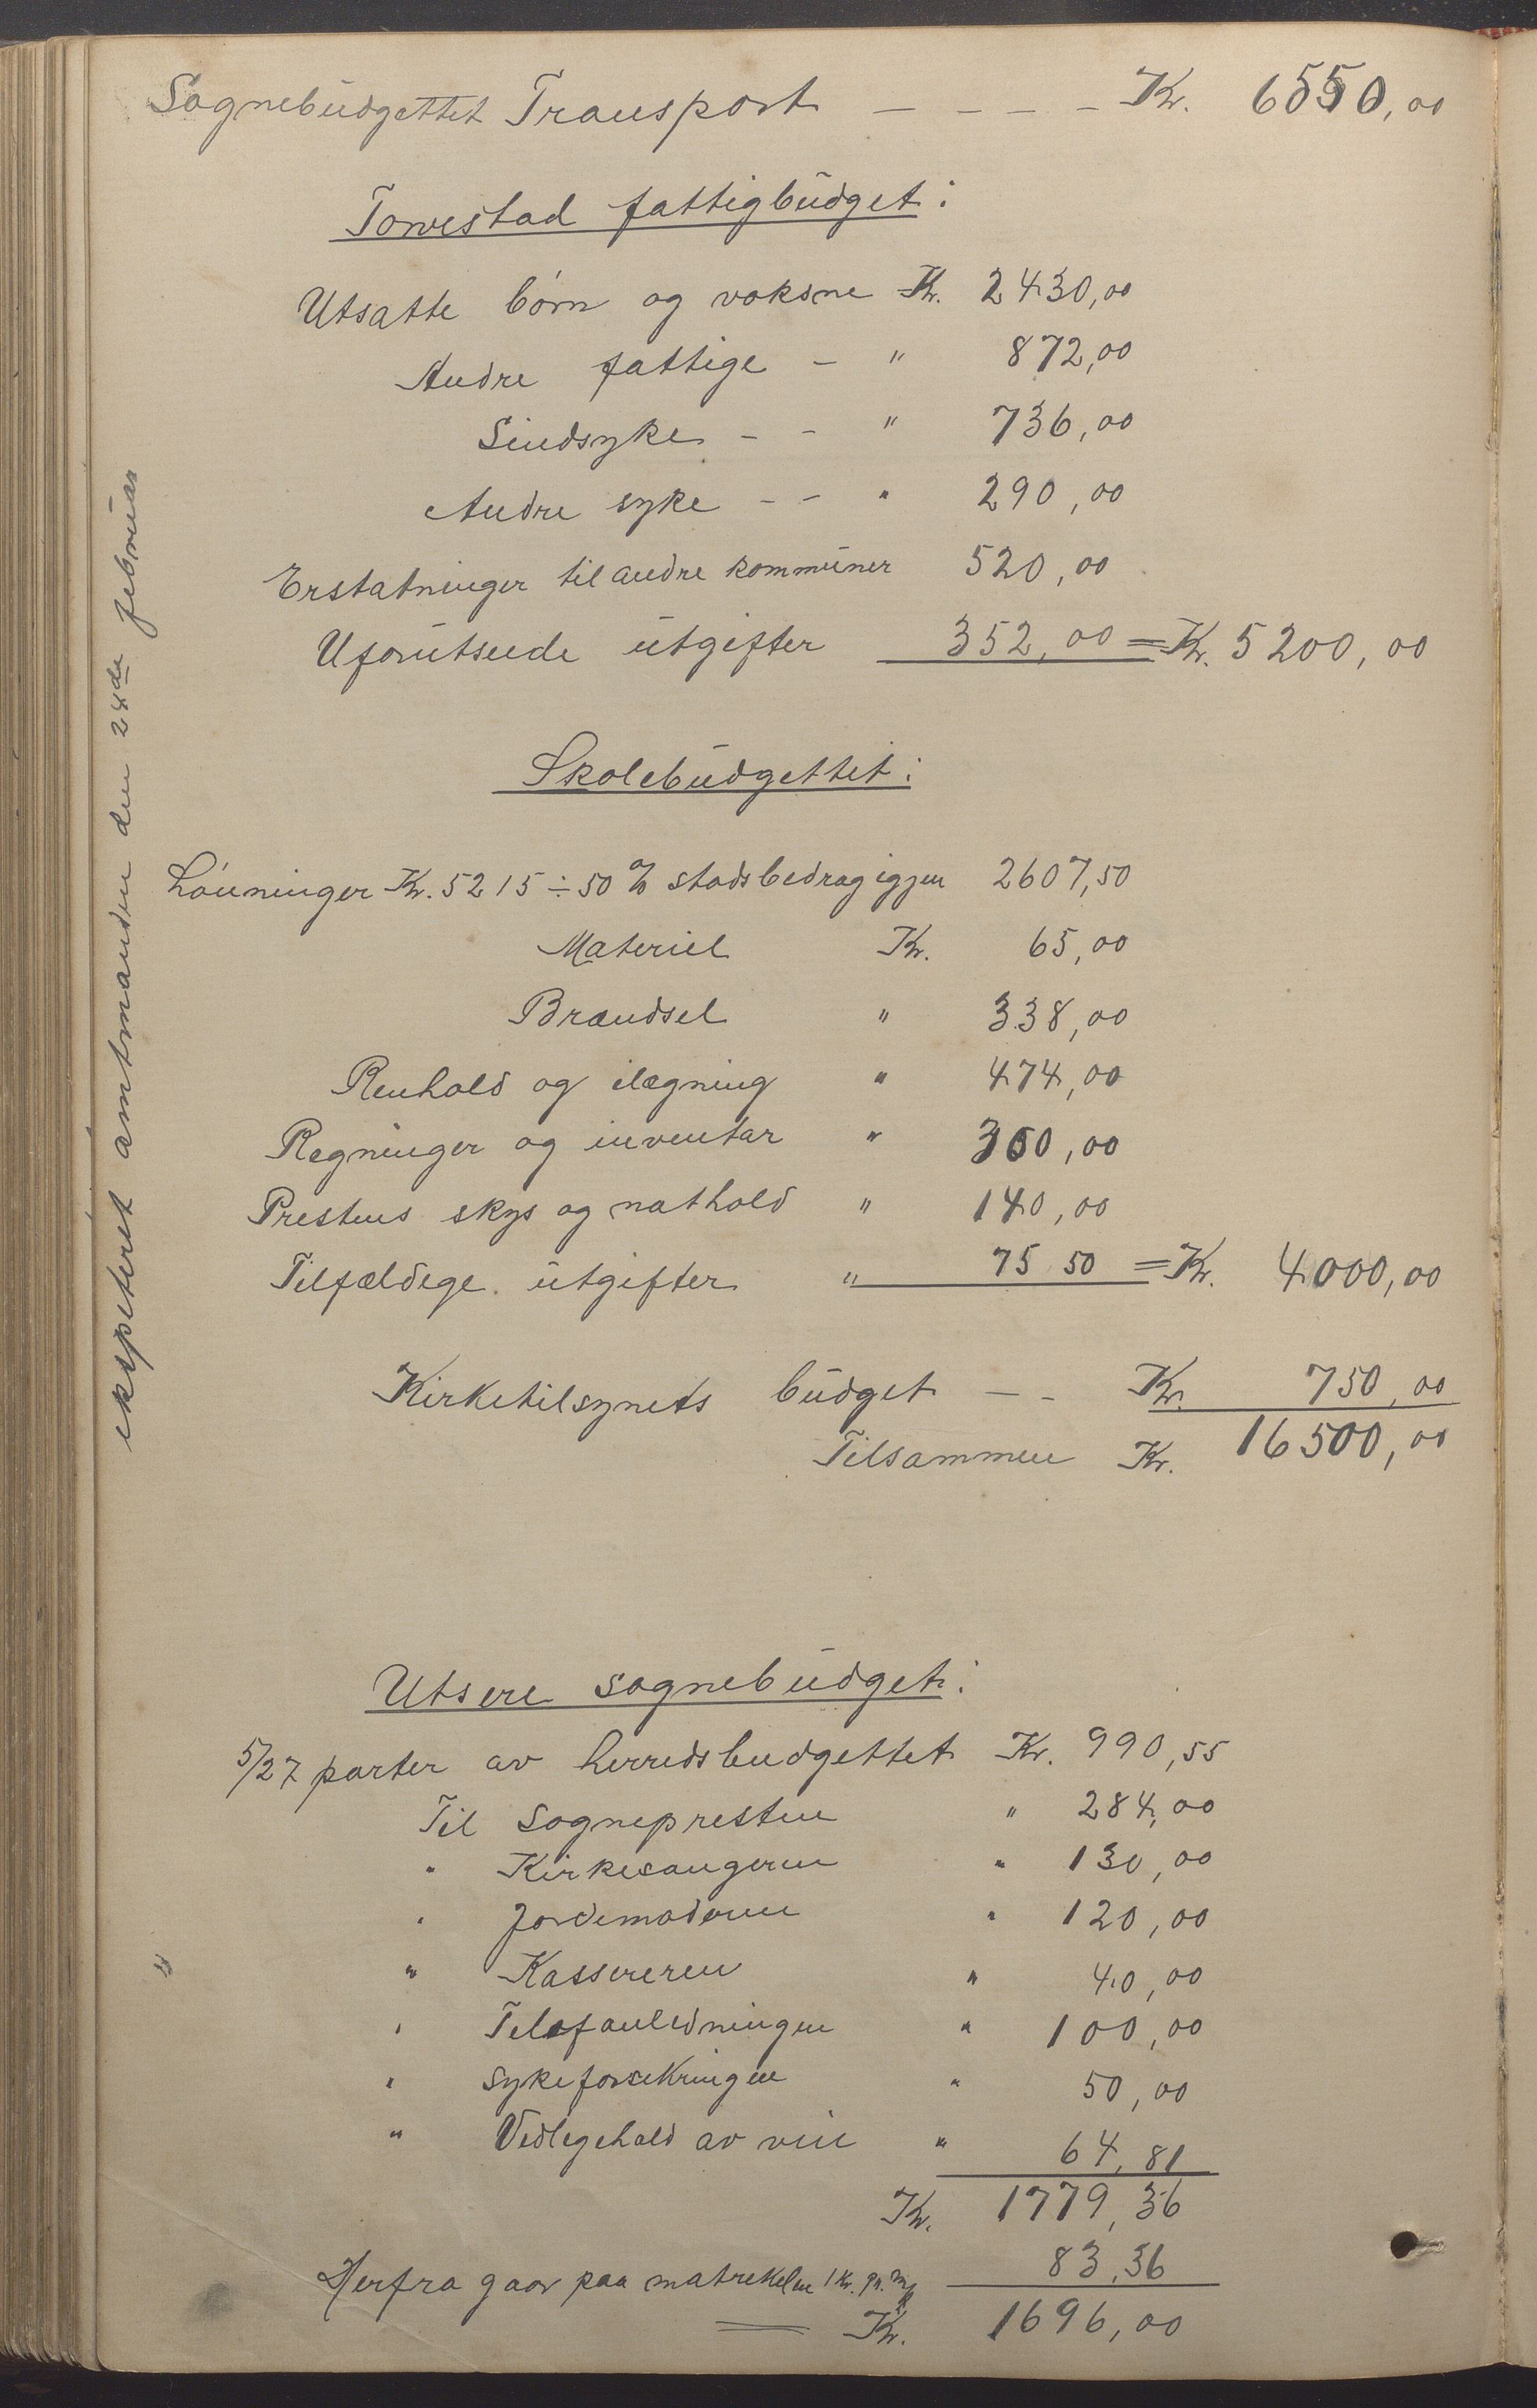 Sognebudgettet Transport – – – – Kr. 6550,00
Torvestad fattigbudget:
Utsatte børn og voksne Kr. 2430,00
Andre fattige – " 872,00
Sindsyke – – " 736,00
Andre syke – – " 290,00
Erstatninger til andre kommuner 520,00
Uforutseede utgifter 352,00 = Kr. 5200,00
Skolebudgettet:
Lønninger Kr. 5215 ÷ 50 % stadsbedrag igjen 2607,50
Materiel Kr. 65,00
Brændsel " 338,00
Renhold og ilægning " 474,00
Regninger og inventar " 300,00
Prestens skys og nathold " 140,00
Tilfældige utgifter " 75 50 = Kr. 4000,00
Kirketilsynets budget – – Kr. 750,00
Tilsammen Kr. 16500,00
Utsere sognebudget:
5/27 parter av herredsbudgettet Kr. 990,55
Til Sognepresten " 284,00
" Kirkesangeren " 130,00
" Jordemoderen " 120,00
" Kassereren " 40,00
" Telefonledningen " 100,00
" sykeforsekringen " 50,00
" Vedlegehold av veie " 64,81
Kr. 1779,36
Herfra gaar paa matrekelen 1 Kr. pr. 83,36
Kr. 1696,00
ekspederet amtmanden den 24de februar